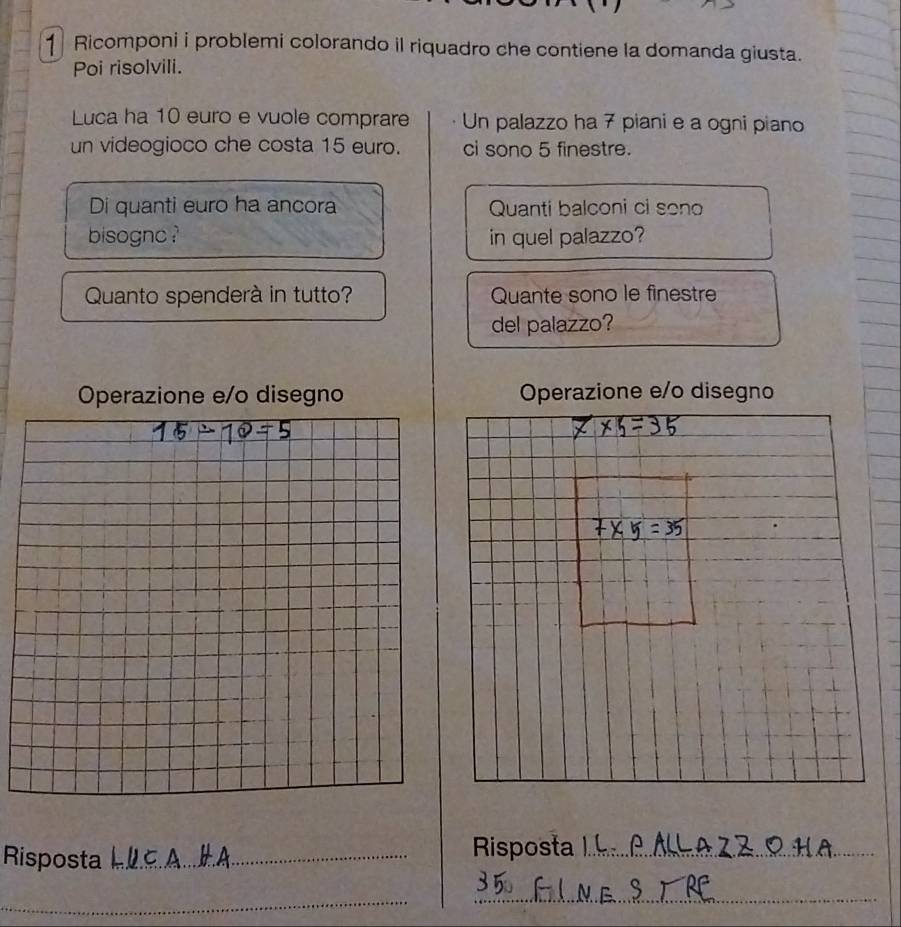 1 Ricomponi i problemi colorando il riquadro che contiene la domanda giusta.
Poi risolvili.
Luca ha 10 euro e vuole comprare
un videogioco che costa 15 euro.
Di quanti euro ha ancora
bisogno?
Quanto spenderà in tutto?
Operazione e/o disegno
15-10=5
Risposta LUCA HA
Un palazzo ha 7 piani e a ogni piano
ci sono 5 finestre.
Quanti balconi ci sono
in quel palazzo?
Quante sono le finestre
del palazzo?
Operazione e/o disegno
7×5=35
7×5=35
Risposta IL PALLAZZO HA
35 FINESTRE